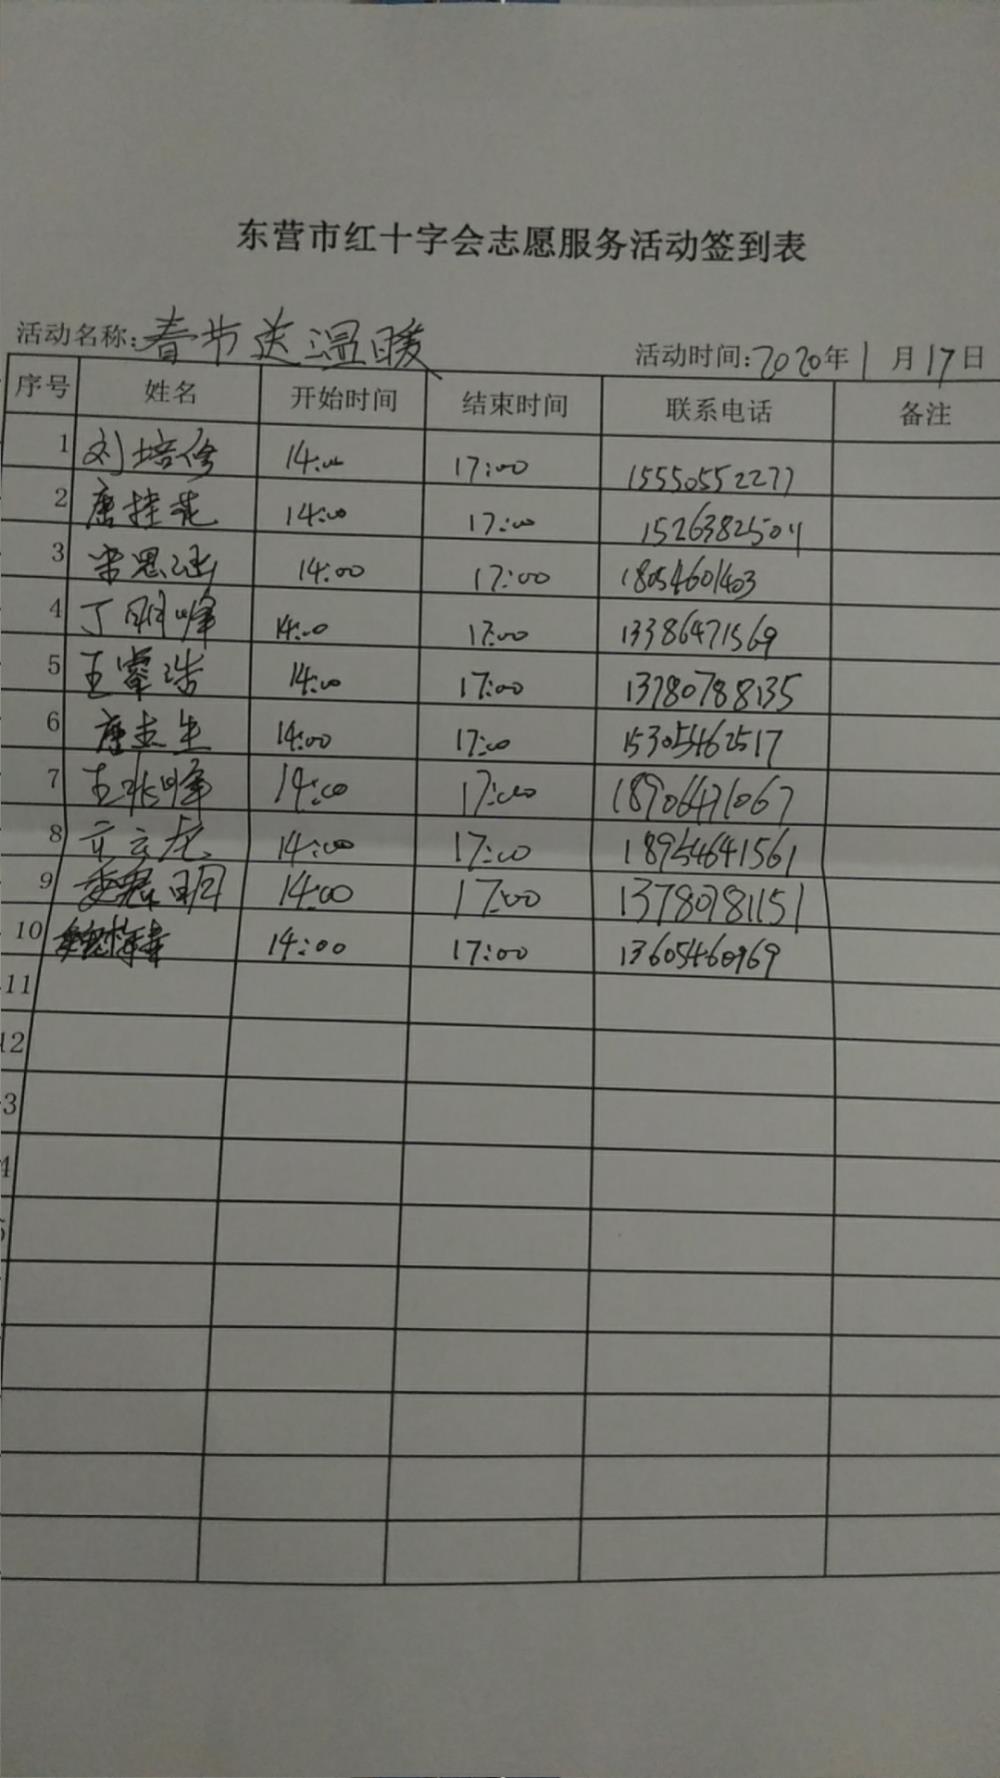 东营市红十字会志愿服务活动签到表
活动名称:春节送温暖 活动时间:2020年1月17日
序号 姓名 开始时间 结束时间 联系电话 备注
1 刘培俊 14:00 17:00 15550552277
2 唐桂花 14:00 17:00 15263825011
3 宋思涵 14:00 17:00 18054601403
4 丁明峰 14:00 17:00 13386471569
5 王睿浩 14:00 17:00 13780788135
6 唐志生 14:00 17:00 15305462517
7 14:00 17:00 18906471067
8 云龙 14:00 17:00 18954641561
9 明 14:00 17:00 13780781151
10 14:00 17:00 13605460969
11
12
3
4
5